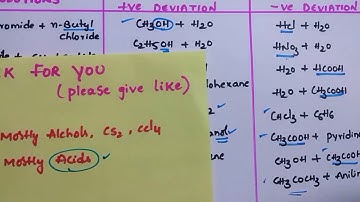 +VE DEVIATION
-VE DEVIATION
romide + n-Butyl
chloride
CH3OH + H2O
C2H5OH + H2O
lohexane
HCl + H2O
HNO3 + H2O
H2O + HCOOH
H2O + CH3COOH
CHCl3 + C6H6
CH3COOH + pyridine
CH3OH + CH3COOH
CH3COCH3 + Anilin
K FOR YOU
(please give like)
Mostly Alchols, CS2, CCl4
Mostly Acids